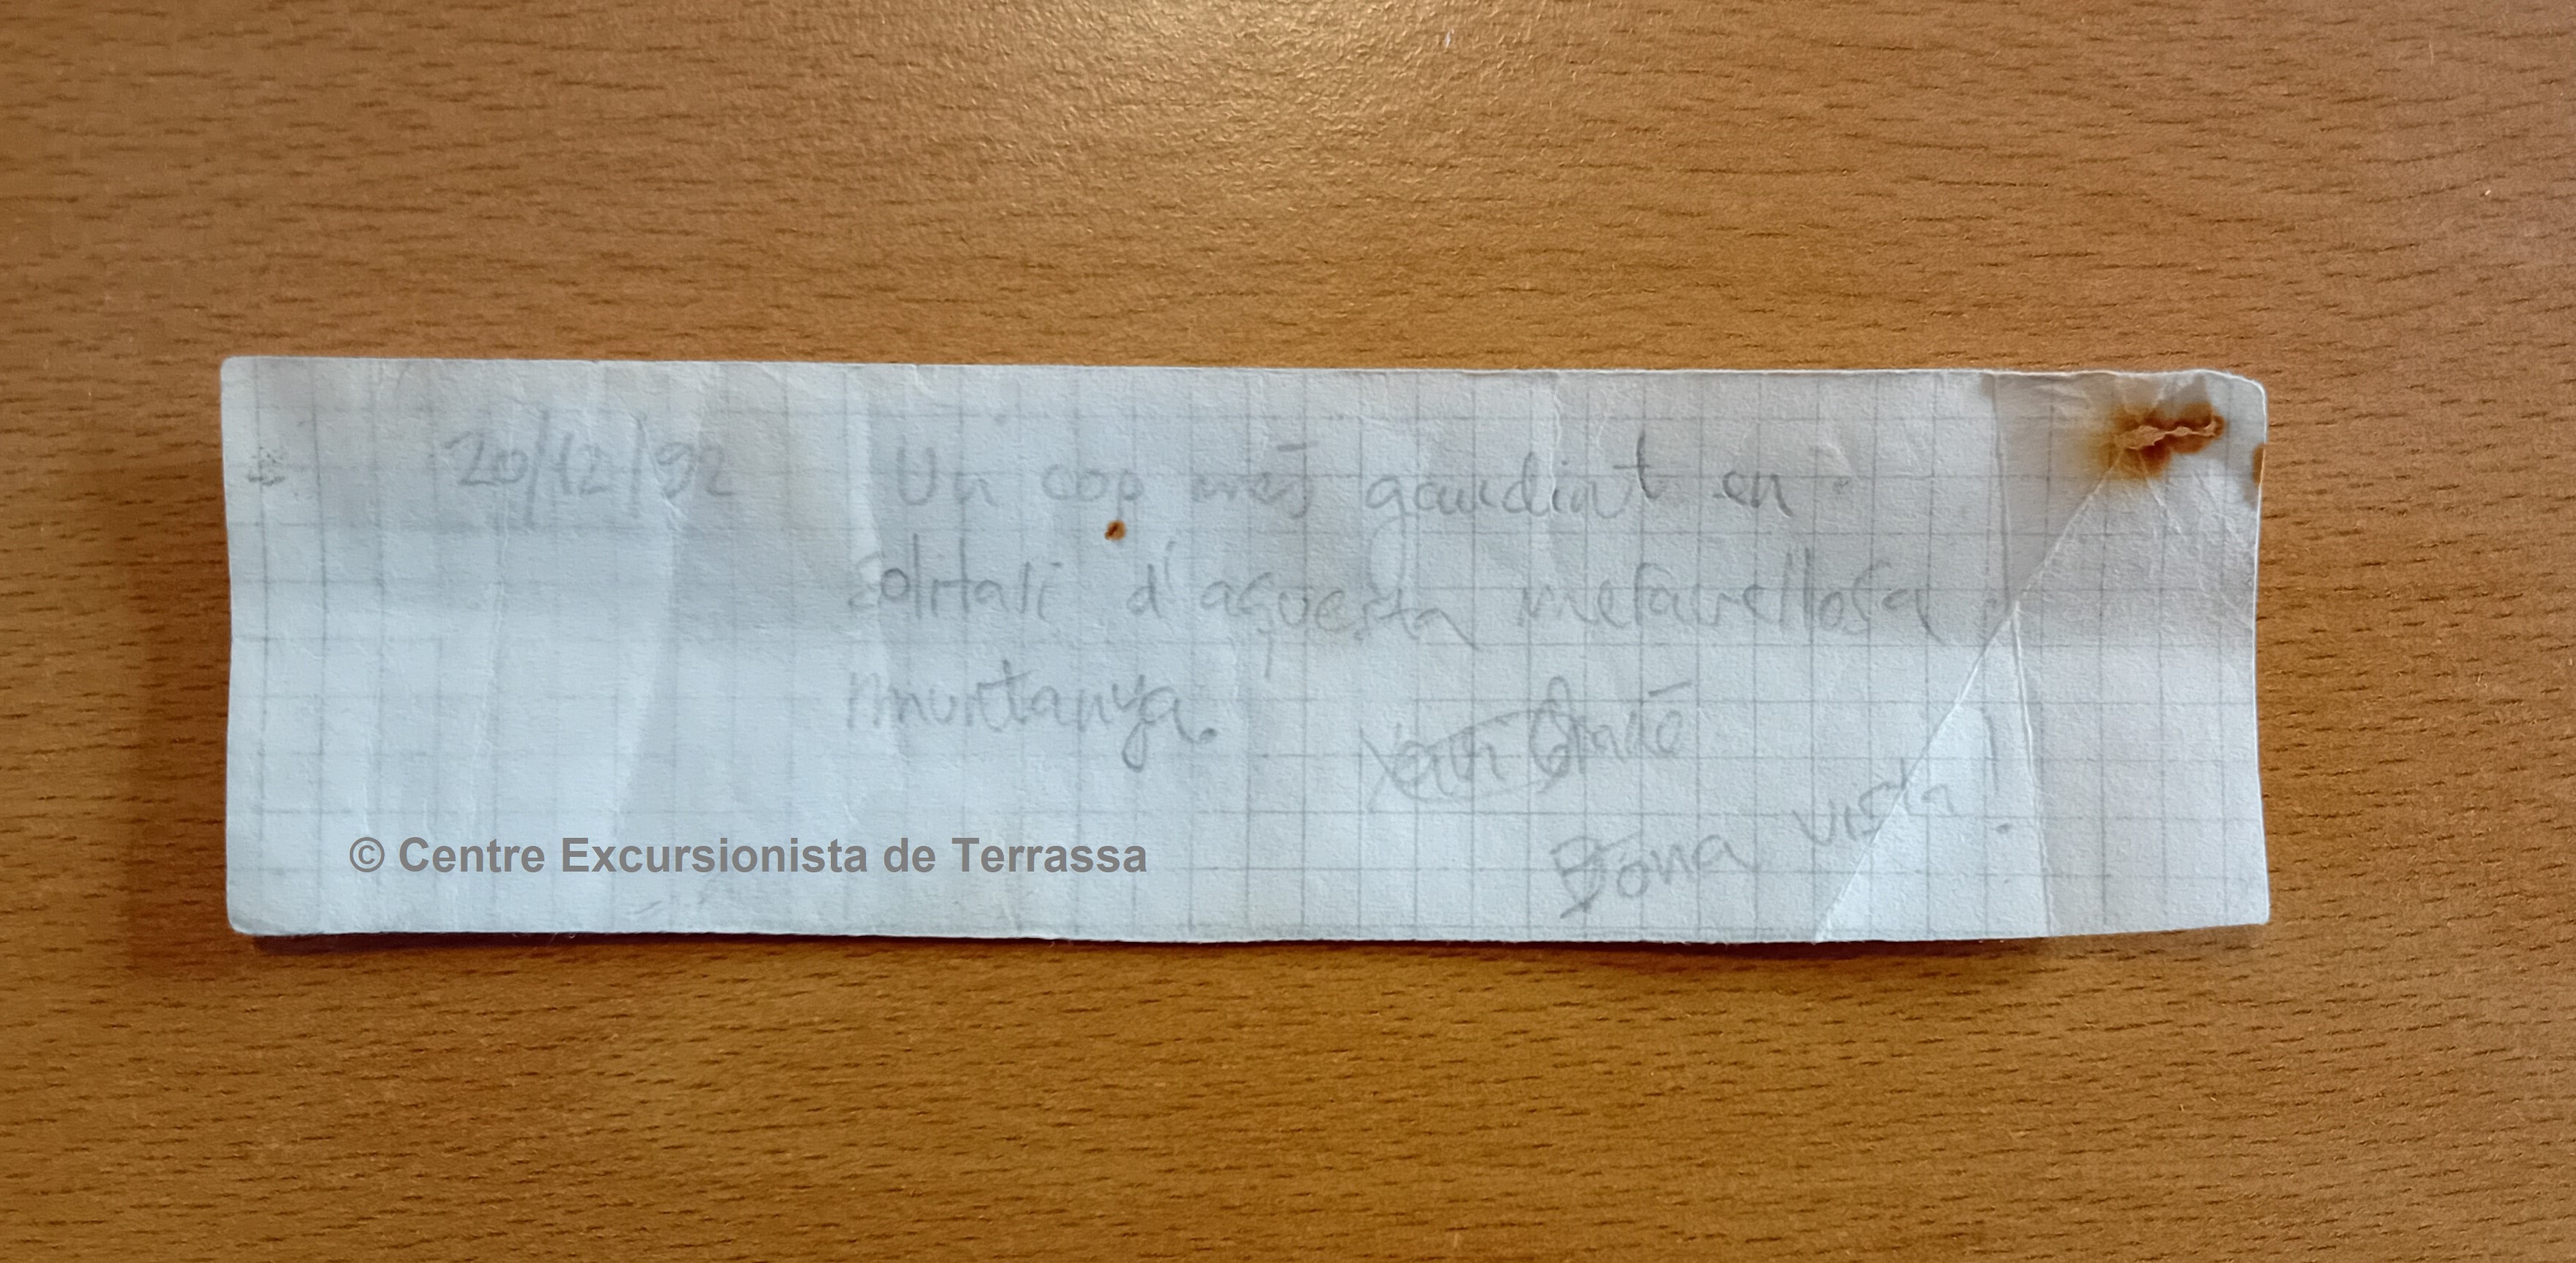 20/12/92 Un cop més gaudint en
solitari d'aquesta meravellosa
muntanya.
Bona vista!
© Centre Excursionista de Terrassa